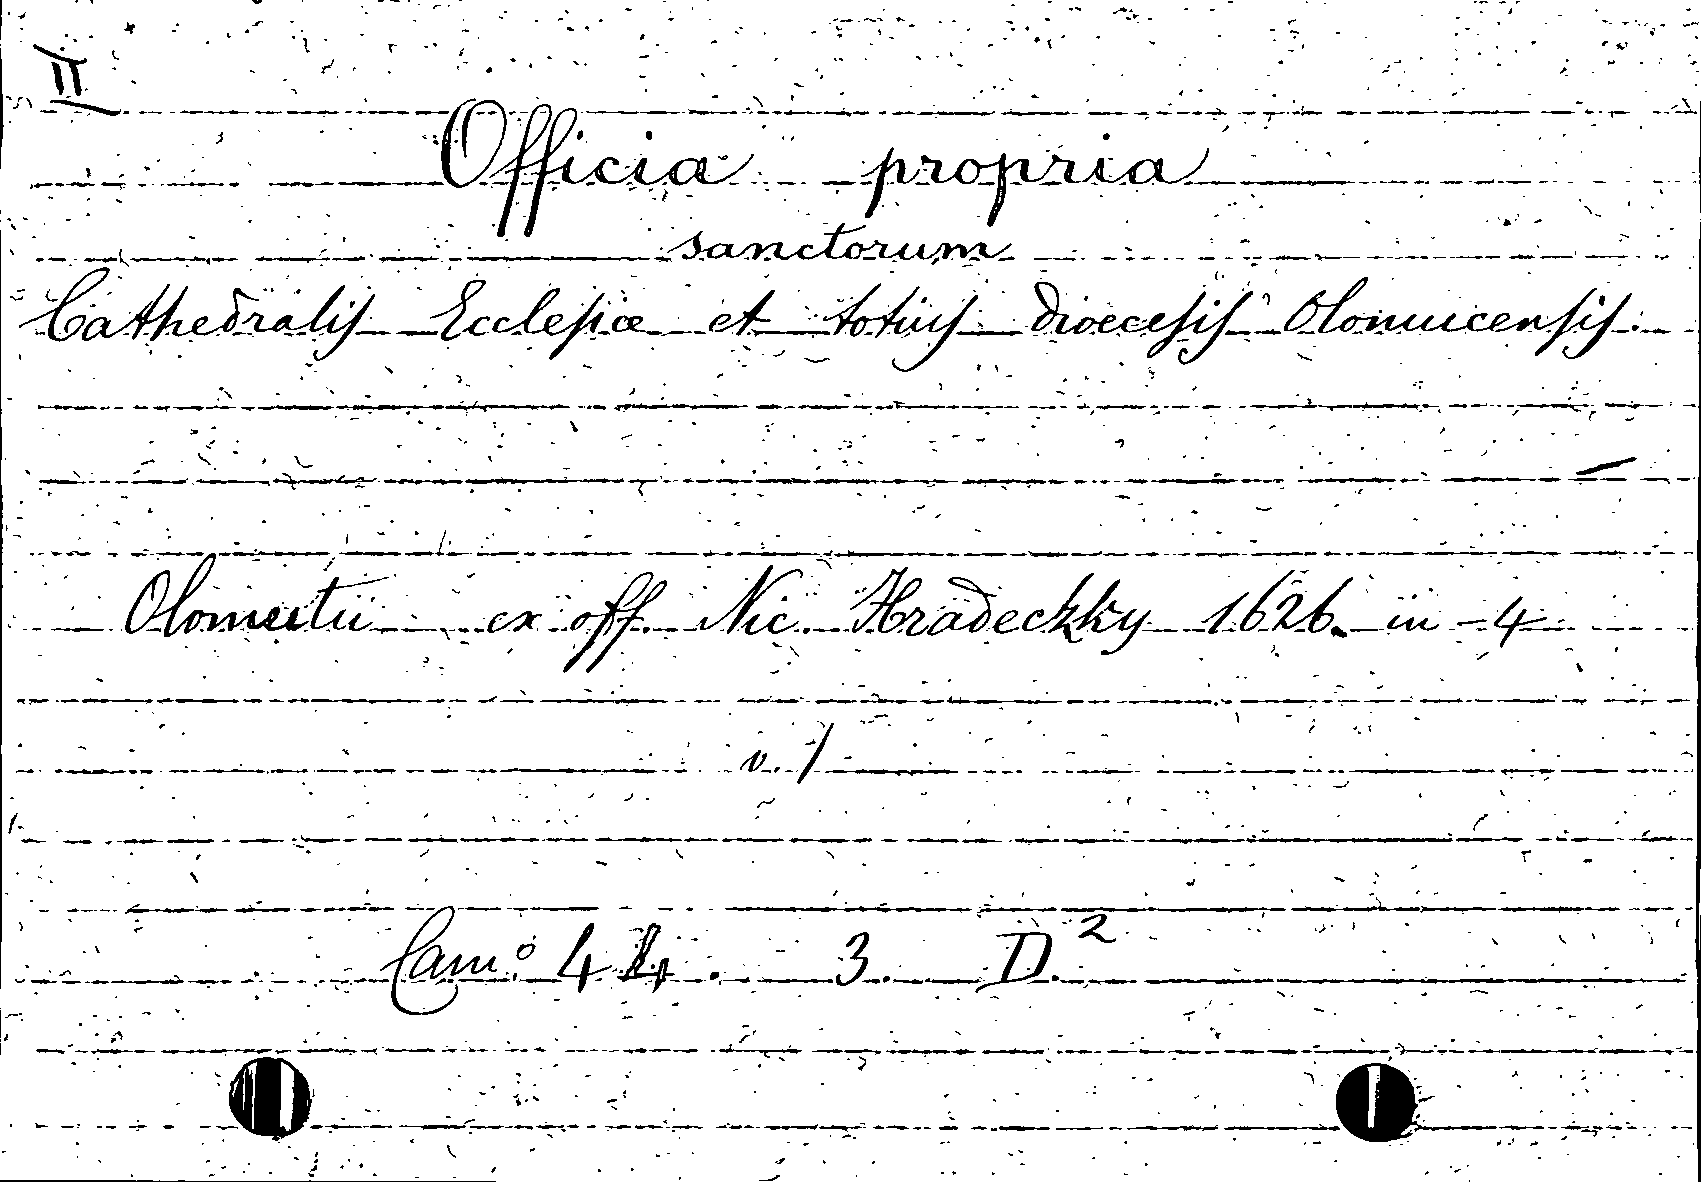 II
Officia propria
sanctorum
Cathedralis Ecclesiæ et totius dioecesis Olomucensis.
Olomutii ex off. Nic. Hradeckky 1626. in 4
v. /
Cam: 44. 3. D.²